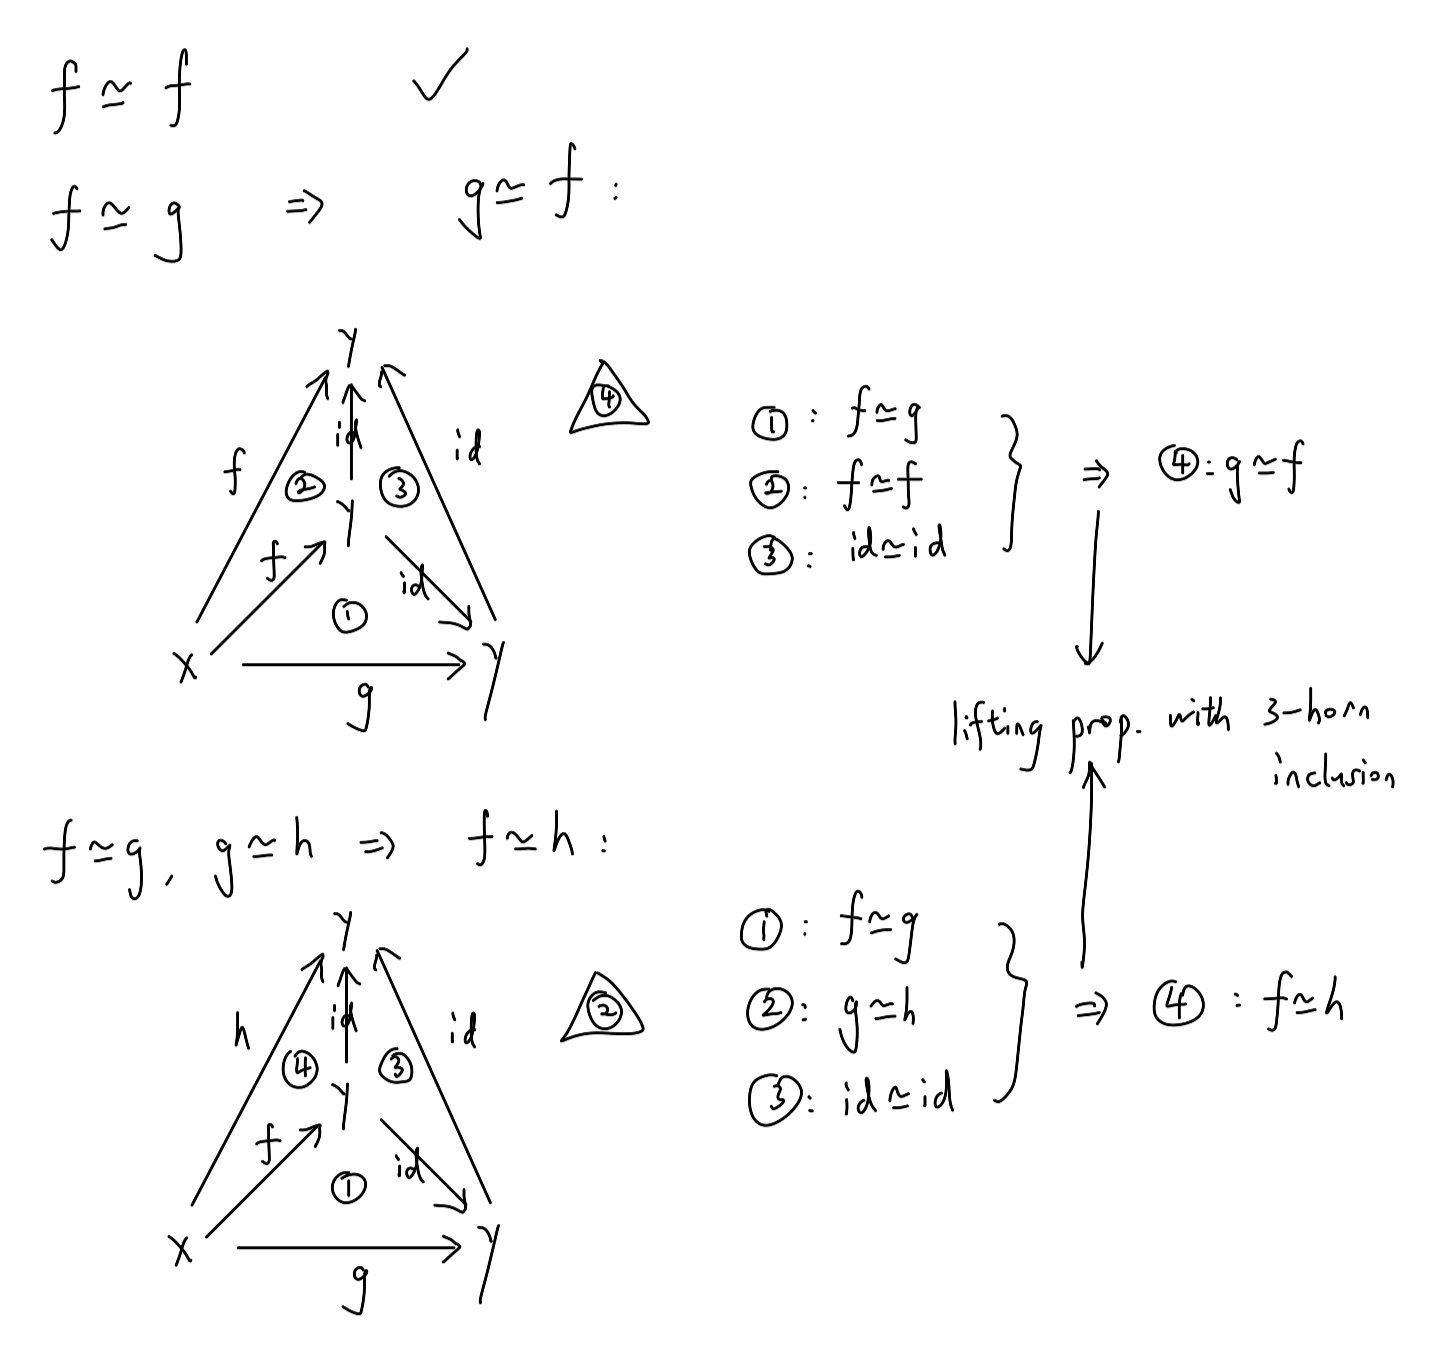 f ≃ f ✓
f ≃ g ⇒ g ≃ f :
Y
④
f
id
id
②
③
Y
f
id
①
X
Y
g
① : f ≃ g
② : f ≃ f
③ : id ≃ id
⇒ ④ : g ≃ f
lifting prop. with 3-horn
inclusion
f ≃ g, g ≃ h ⇒ f ≃ h :
Y
②
h
id
id
④
③
Y
f
id
①
X
Y
g
① : f ≃ g
② : g ≃ h
③ : id ≃ id
⇒ ④ : f ≃ h